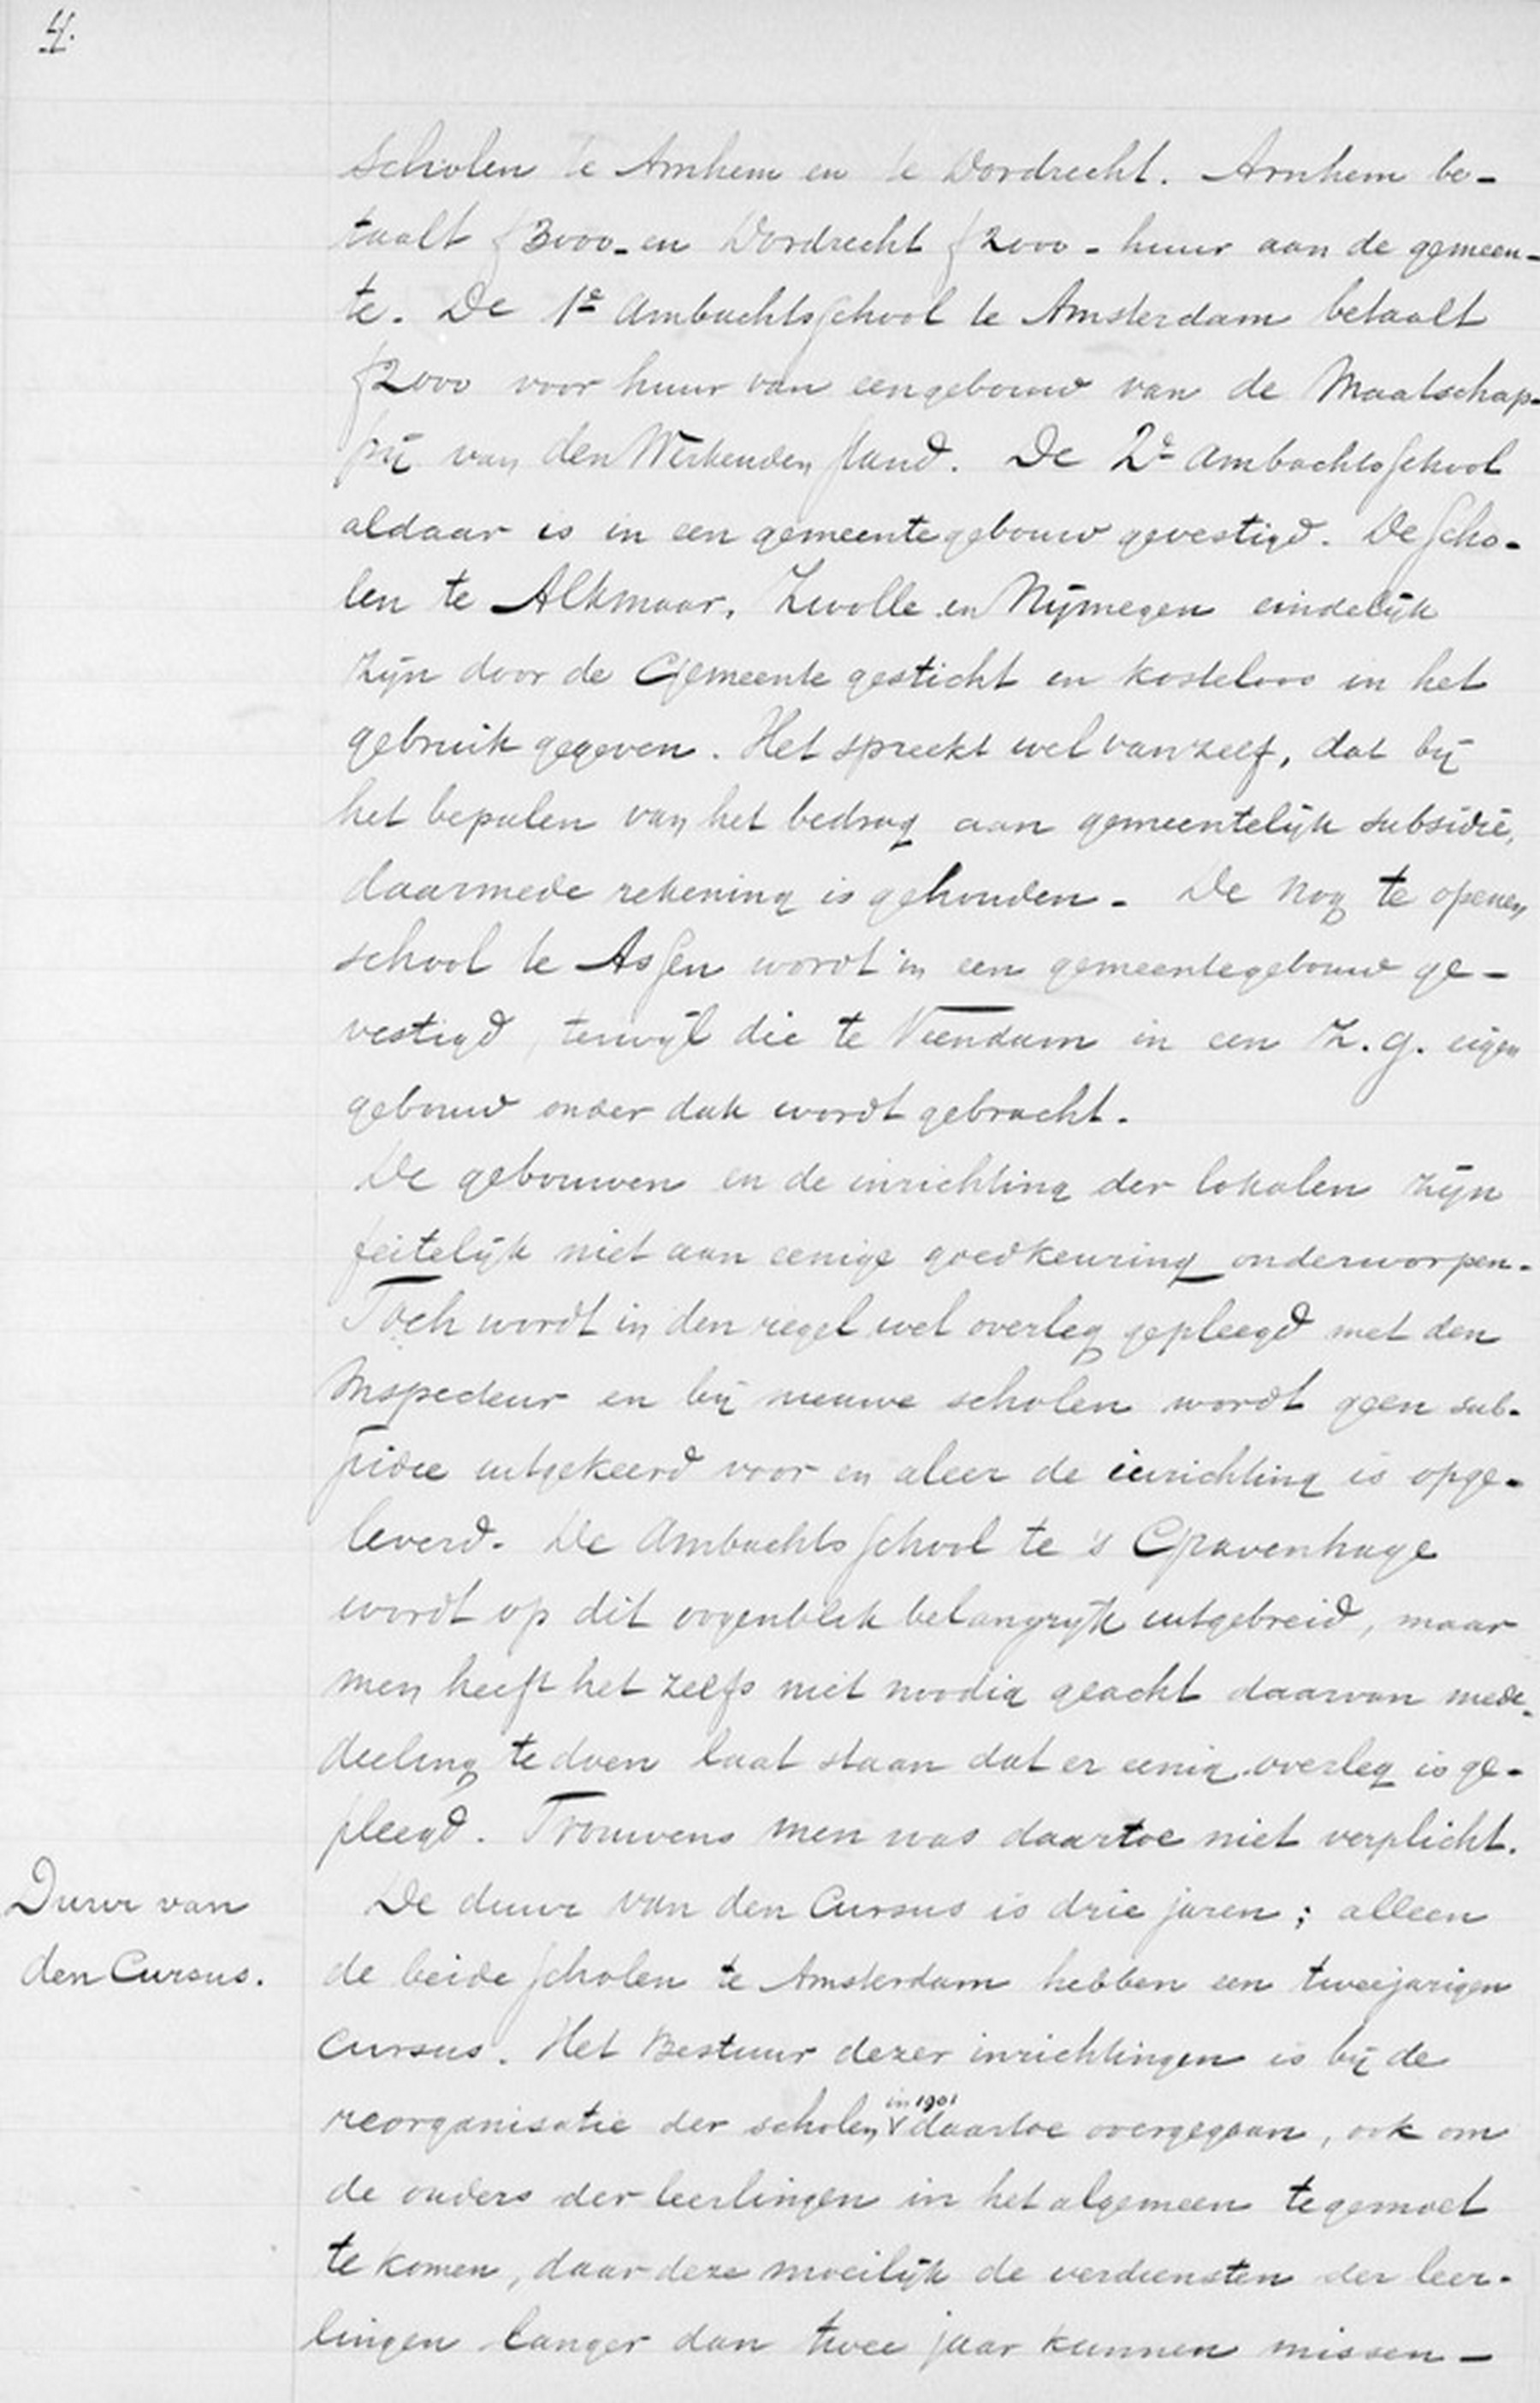 4.
scholen te Arnhem en te Dordrecht. Arnhem be-
taalt f 3000.- en Dordrecht f 2000.- huur aan de gemeen-
te. De 1e Ambachtsschool te Amsterdam betaalt
f 2000 voor huur van een gebouw van de Maatschap-
pij van den Werkenden stand. De 2e Ambachtsschool
aldaar is in een gemeentegebouw gevestigd. De scho-
len te Alkmaar, Zwolle en Nijmegen eindelijk
zijn door de Gemeente gesticht en kosteloos in het
gebruik gegeven. Het spreekt wel van zelf, dat bij
het bepalen van het bedrag aan gemeentelijk subsidie,
daarmede rekening is gehouden. De nog te openen
school te Assen wordt in een gemeentegebouw ge-
vestigd, terwijl die te Veendam in een z.g. eigen
gebouw onder dak wordt gebracht.
De gebouwen en de inrichting der lokalen zijn
feitelijk niet aan eenige goedkeuring onderworpen.
Toch wordt in den regel wel overleg gepleegd met den
Inspecteur en bij nieuwe scholen wordt geen sub-
sidie uitgekeerd voor en aleer de inrichting is opge-
leverd. De Ambachtsschool te 's Gravenhage
wordt op dit oogenblik belangrijk uitgebreid, maar
men heeft het zelfs niet noodig geacht daarvan mede-
deeling te doen laat staan dat er eenig overleg is ge-
pleegd. Trouwens men was daartoe niet verplicht.
Duur van
den Cursus.
De duur van den Cursus is drie jaren; alleen
de beide scholen te Amsterdam hebben een tweejarigen
cursus. Het Bestuur dezer inrichtingen is bij de
reorganisatie der scholen in 1901 daartoe overgegaan, ook om
de ouders der leerlingen in het algemeen tegemoet
te komen, daar deze moeilijk de verdiensten der leer-
lingen langer dan twee jaar kunnen missen -